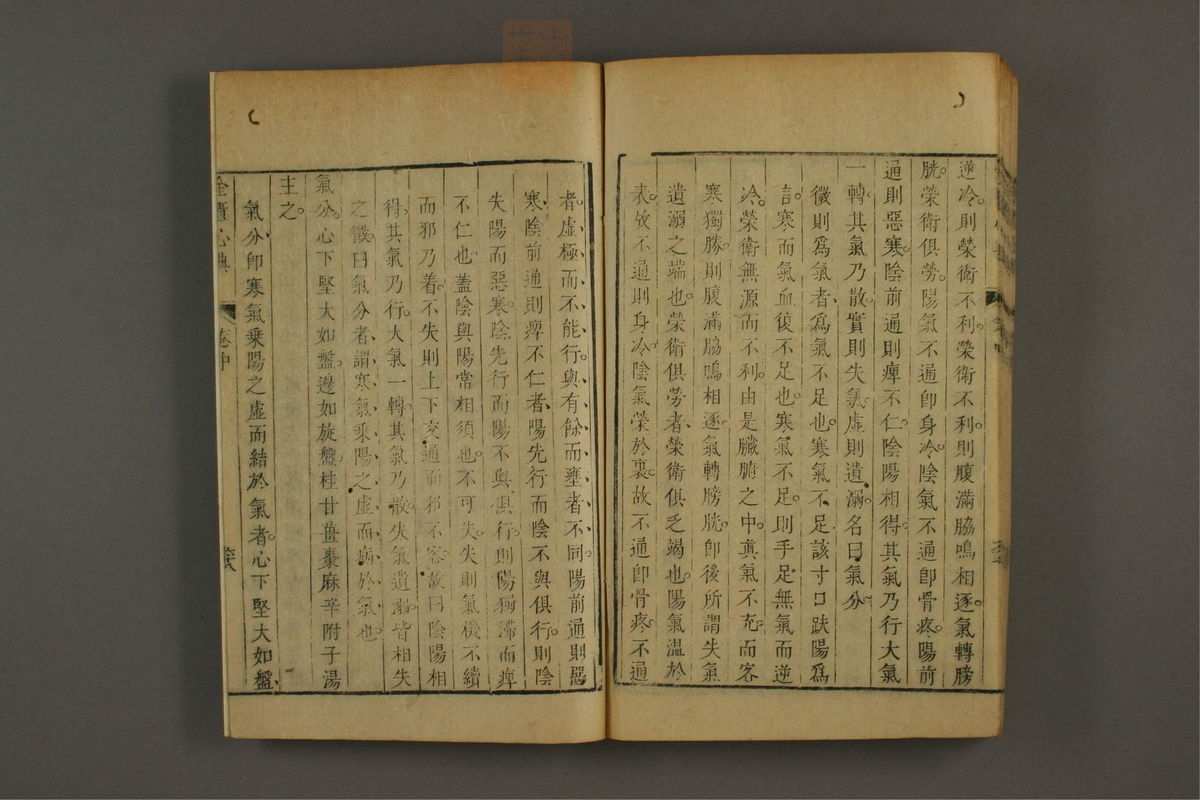 逆冷。則榮衛不利。榮衛不利。則腹滿脇鳴相逐。氣轉膀
胱。榮衛俱勞。陽氣不通卽身冷。陰氣不通卽骨疼。陽前
通則惡寒。陰前通則痺不仁。陰陽相得。其氣乃行。大氣
一轉。其氣乃散。實則失氣。虛則遺溺。名曰氣分。
微則爲氣者。爲氣不足也。寒氣不足。該寸口趺陽爲
言。寒而氣血復不足也。寒氣不足。則手足無氣而逆
冷。榮衛無源而不利。由是臟腑之中。眞氣不充。而客
寒獨勝。則腹滿脇鳴相逐。氣轉膀胱。卽後所謂失氣
遺溺之端也。榮衛俱勞者。榮衛俱乏竭也。陽氣溫於
表。故不通則身冷。陰氣榮於裏。故不通卽骨疼。不通
者。虛極而不能行。與有餘而壅者不同。陽前通則惡
寒。陰前通則痺不仁者。陽先行而陰不與俱行。則陰
失陽而惡寒。陰先行而陽不與俱行。則陽獨滯而痺
不仁也。蓋陰與陽常相須也。不可失。失則氣機不續
而邪乃着。不失則上下交通而邪不容。故曰陰陽相
得。其氣乃行。大氣一轉。其氣乃散。失氣遺溺。皆相失
之徵。曰氣分者。謂寒氣乘陽之虛而病於氣也。
氣分。心下堅大如盤。邊如旋盤。桂甘薑棗麻辛附子湯
主之。
氣分。卽寒氣乘陽之虛而結於氣者。心下堅大如盤。
金匱心典
卷中